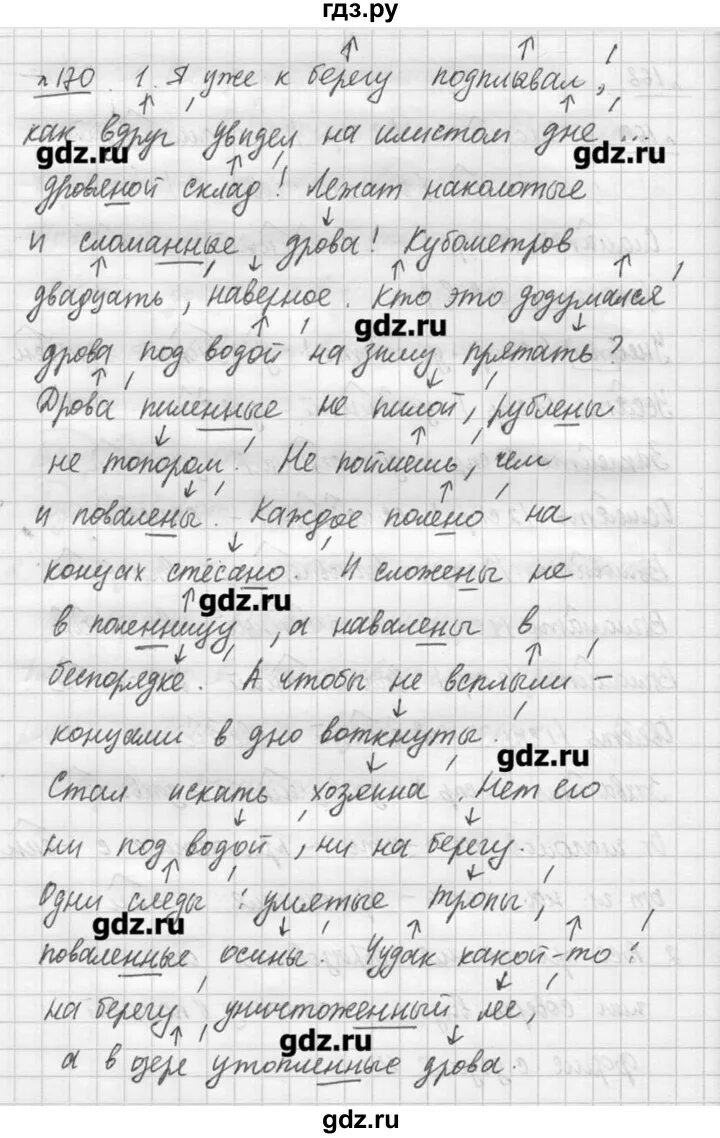 гдз.ру
№170. 1. Я уже к берегу подплывал,
как вдруг увидел на илистом дне...
gdz.ru gdz.ru
дровяной склад! Лежат наколотые
и сломанные дрова! Кубометров
двадцать, наверное. Кто это додумался
gdz.ru
дрова под водой на зиму прятать?
Дрова пиленные не пилой, рублены
не топором! Не поймешь, чем
и повалены! Каждое полено на
концах стёсано. И сложены не
gdz.ru
в поленницу, а навалены в
беспорядке. А чтобы не всплыли –
концами в дно воткнуты!
gdz.ru
Стал искать хозяина. Нет его
ни под водой, ни на берегу.
Одни следы: умятые тропы,
gdz.ru
поваленные осины. Чудак какой-то:
на берегу уничтоженный лес,
gdz.ru
а в озере утопленные дрова.
gdz.ru